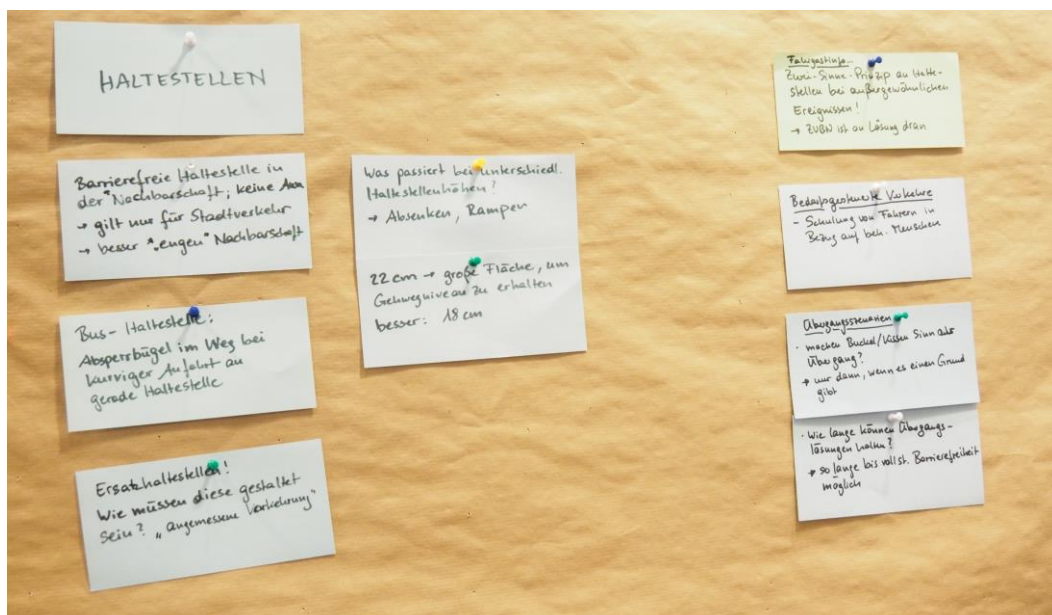 HALTESTELLEN
Barrierefreie Haltestelle in
der "Nachbarschaft; keine
→ gilt nur für Stadtverkehr
→ besser "engen" Nachbarschaft
Bus-Haltestelle:
Absperrbügel im Weg bei
kurviger Anfahrt an
gerade Haltestelle
Ersatzhaltestellen!
Wie müssen diese gestaltet
sein? "angemessene Vorkehrung"
Was passiert bei unterschiedl.
Haltestellenhöhen?
→ Absenken, Rampen
22 cm → große Fläche, um
Gehwegniveau zu erhalten
besser: 18 cm
Fahrgastinfo
Zwei-Sinne-Prinzip an Halte-
stellen bei außergewöhnlichen
Ereignissen!
→ ZVBN ist an Lösung dran
Bedarfsgesteuerte Verkehre
- Schulung von Fahrern in
Bezug auf beh. Menschen
Übergangsszenarien
· machen Buckel/Kissen Sinn als
Übergang?
→ nur dann, wenn es einen Grund
gibt
· Wie lange können Übergangs-
lösungen halten?
→ so lange bis vollst. Barrierefreiheit
möglich